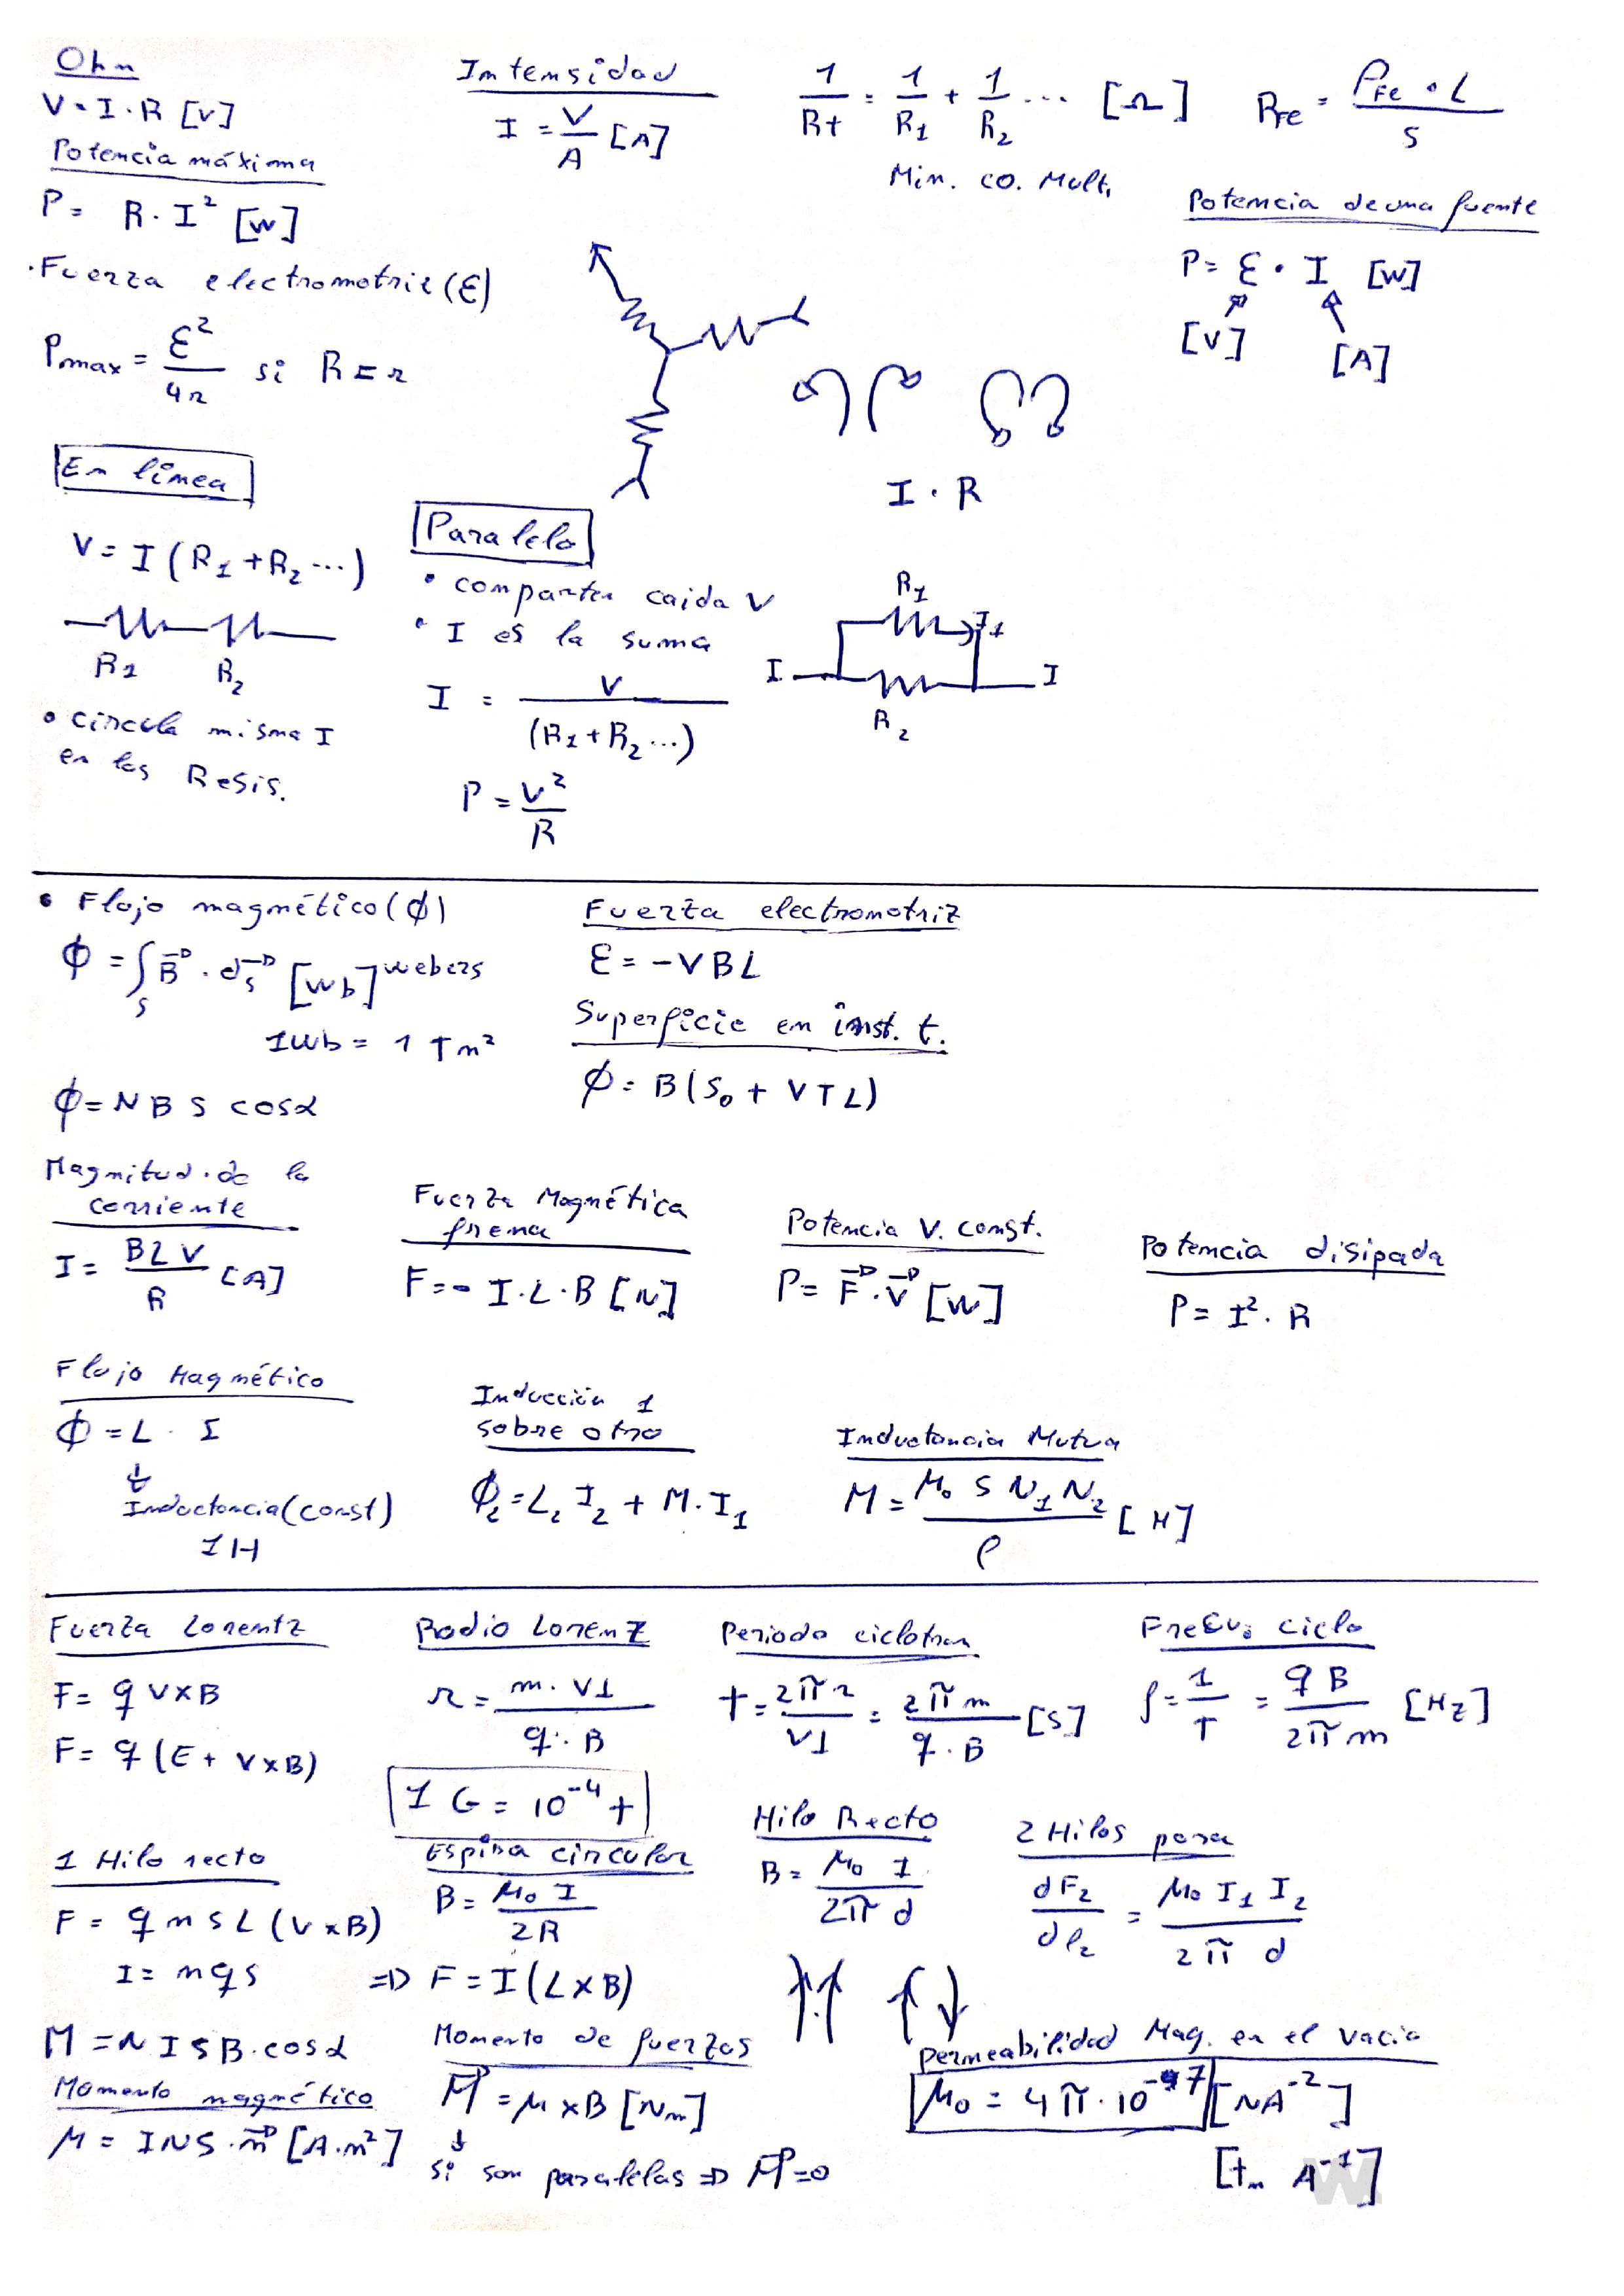 Ohm
V = I · R [V]
Potencia máxima
P = R · I² [W]
· Fuerza electromotriz (ε)
Pmax = ε² / 4r si R = r
Intensidad
I = V / A [A]
1/Rt = 1/R₁ + 1/R₂ ... [Ω]
Min. co. Mult.
R_Fe = ρ_Fe · L / S
Potencia de una fuente
P = ε · I [W]
[V] [A]
I · R
En línea
V = I (R₁ + R₂ ...)
R₁ R₂
• circula misma I
en las Resis.
Paralelo
• comparten caida V
• I es la suma
I = V / (R₁ + R₂ ...)
P = V² / R
R₁
I₁
I I
R₂
• Flujo magnético (ϕ)
ϕ = ∫s B⃗ · ds⃗ [Wb] webers
1 Wb = 1 T m²
ϕ = N B S cosα
Fuerza electromotriz
ε = - V B L
Superficie en inst. t.
ϕ = B (S₀ + V T L)
Magnitud de la
corriente
I = B L V / R [A]
Fuerza Magnética
frena
F = - I · L · B [N]
Potencia V. const.
P = F⃗ · V⃗ [W]
Potencia disipada
P = I² · R
Flujo Magnético
ϕ = L · I
↓
Inductancia (const)
1 H
Inducción 1
sobre otro
ϕ₂ = L₂ I₂ + M · I₁
Inductancia Mutua
M = μ₀ S N₁ N₂ / ℓ [H]
Fuerza Lorentz
F = q V x B
F = q (E + V x B)
Radio Lorenz
r = m · V⊥ / q · B
1 G = 10⁻⁴ T
Periodo ciclotron
T = 2πr / V⊥ = 2πm / q · B [S]
Frecu. ciclo
f = 1/T = q B / 2πm [Hz]
1 Hilo recto
F = q n S L (V x B)
I = n q s => F = I (L x B)
Espira circular
B = μ₀ I / 2R
Hilo Recto
B = μ₀ I / 2π d
2 Hilos para
dF₂ / dℓ₂ = μ₀ I₁ I₂ / 2π d
M = N I S B · cosα
Momento magnético
μ = I N S · n⃗ [A · m²]
Momento de fuerzas
M⃗ = μ x B [Nm]
↓
si son paralelas => M⃗ = 0
Permeabilidad Mag. en el vacio
μ₀ = 4π · 10⁻⁷ [NA⁻²]
[Tm A⁻¹]
W